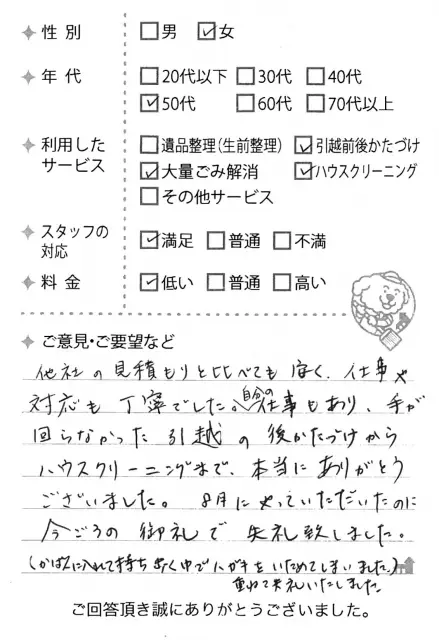 性別 □男 ☑女
年代 □20代以下 □30代 □40代
☑50代 □60代 □70代以上
利用した
サービス
□遺品整理(生前整理) ☑引越前後かたづけ
☑大量ごみ解消 ☑ハウスクリーニング
□その他サービス
スタッフの
対応
☑満足 □普通 □不満
料金 ☑低い □普通 □高い
ご意見・ご要望など
他社の見積もりと比べても安く、仕事や
対応も丁寧でした。自分の仕事もあり、手が
回らなかった引越の後かたづけから
ハウスクリーニングまで、本当にありがとう
ございました。8月にやっていただいたのに
今ごろの御礼で失礼致しました。
(かばんに入れて持ち歩く中でハガキをいためてしまいました。)
重ねて失礼いたしました
ご回答頂き誠にありがとうございました。